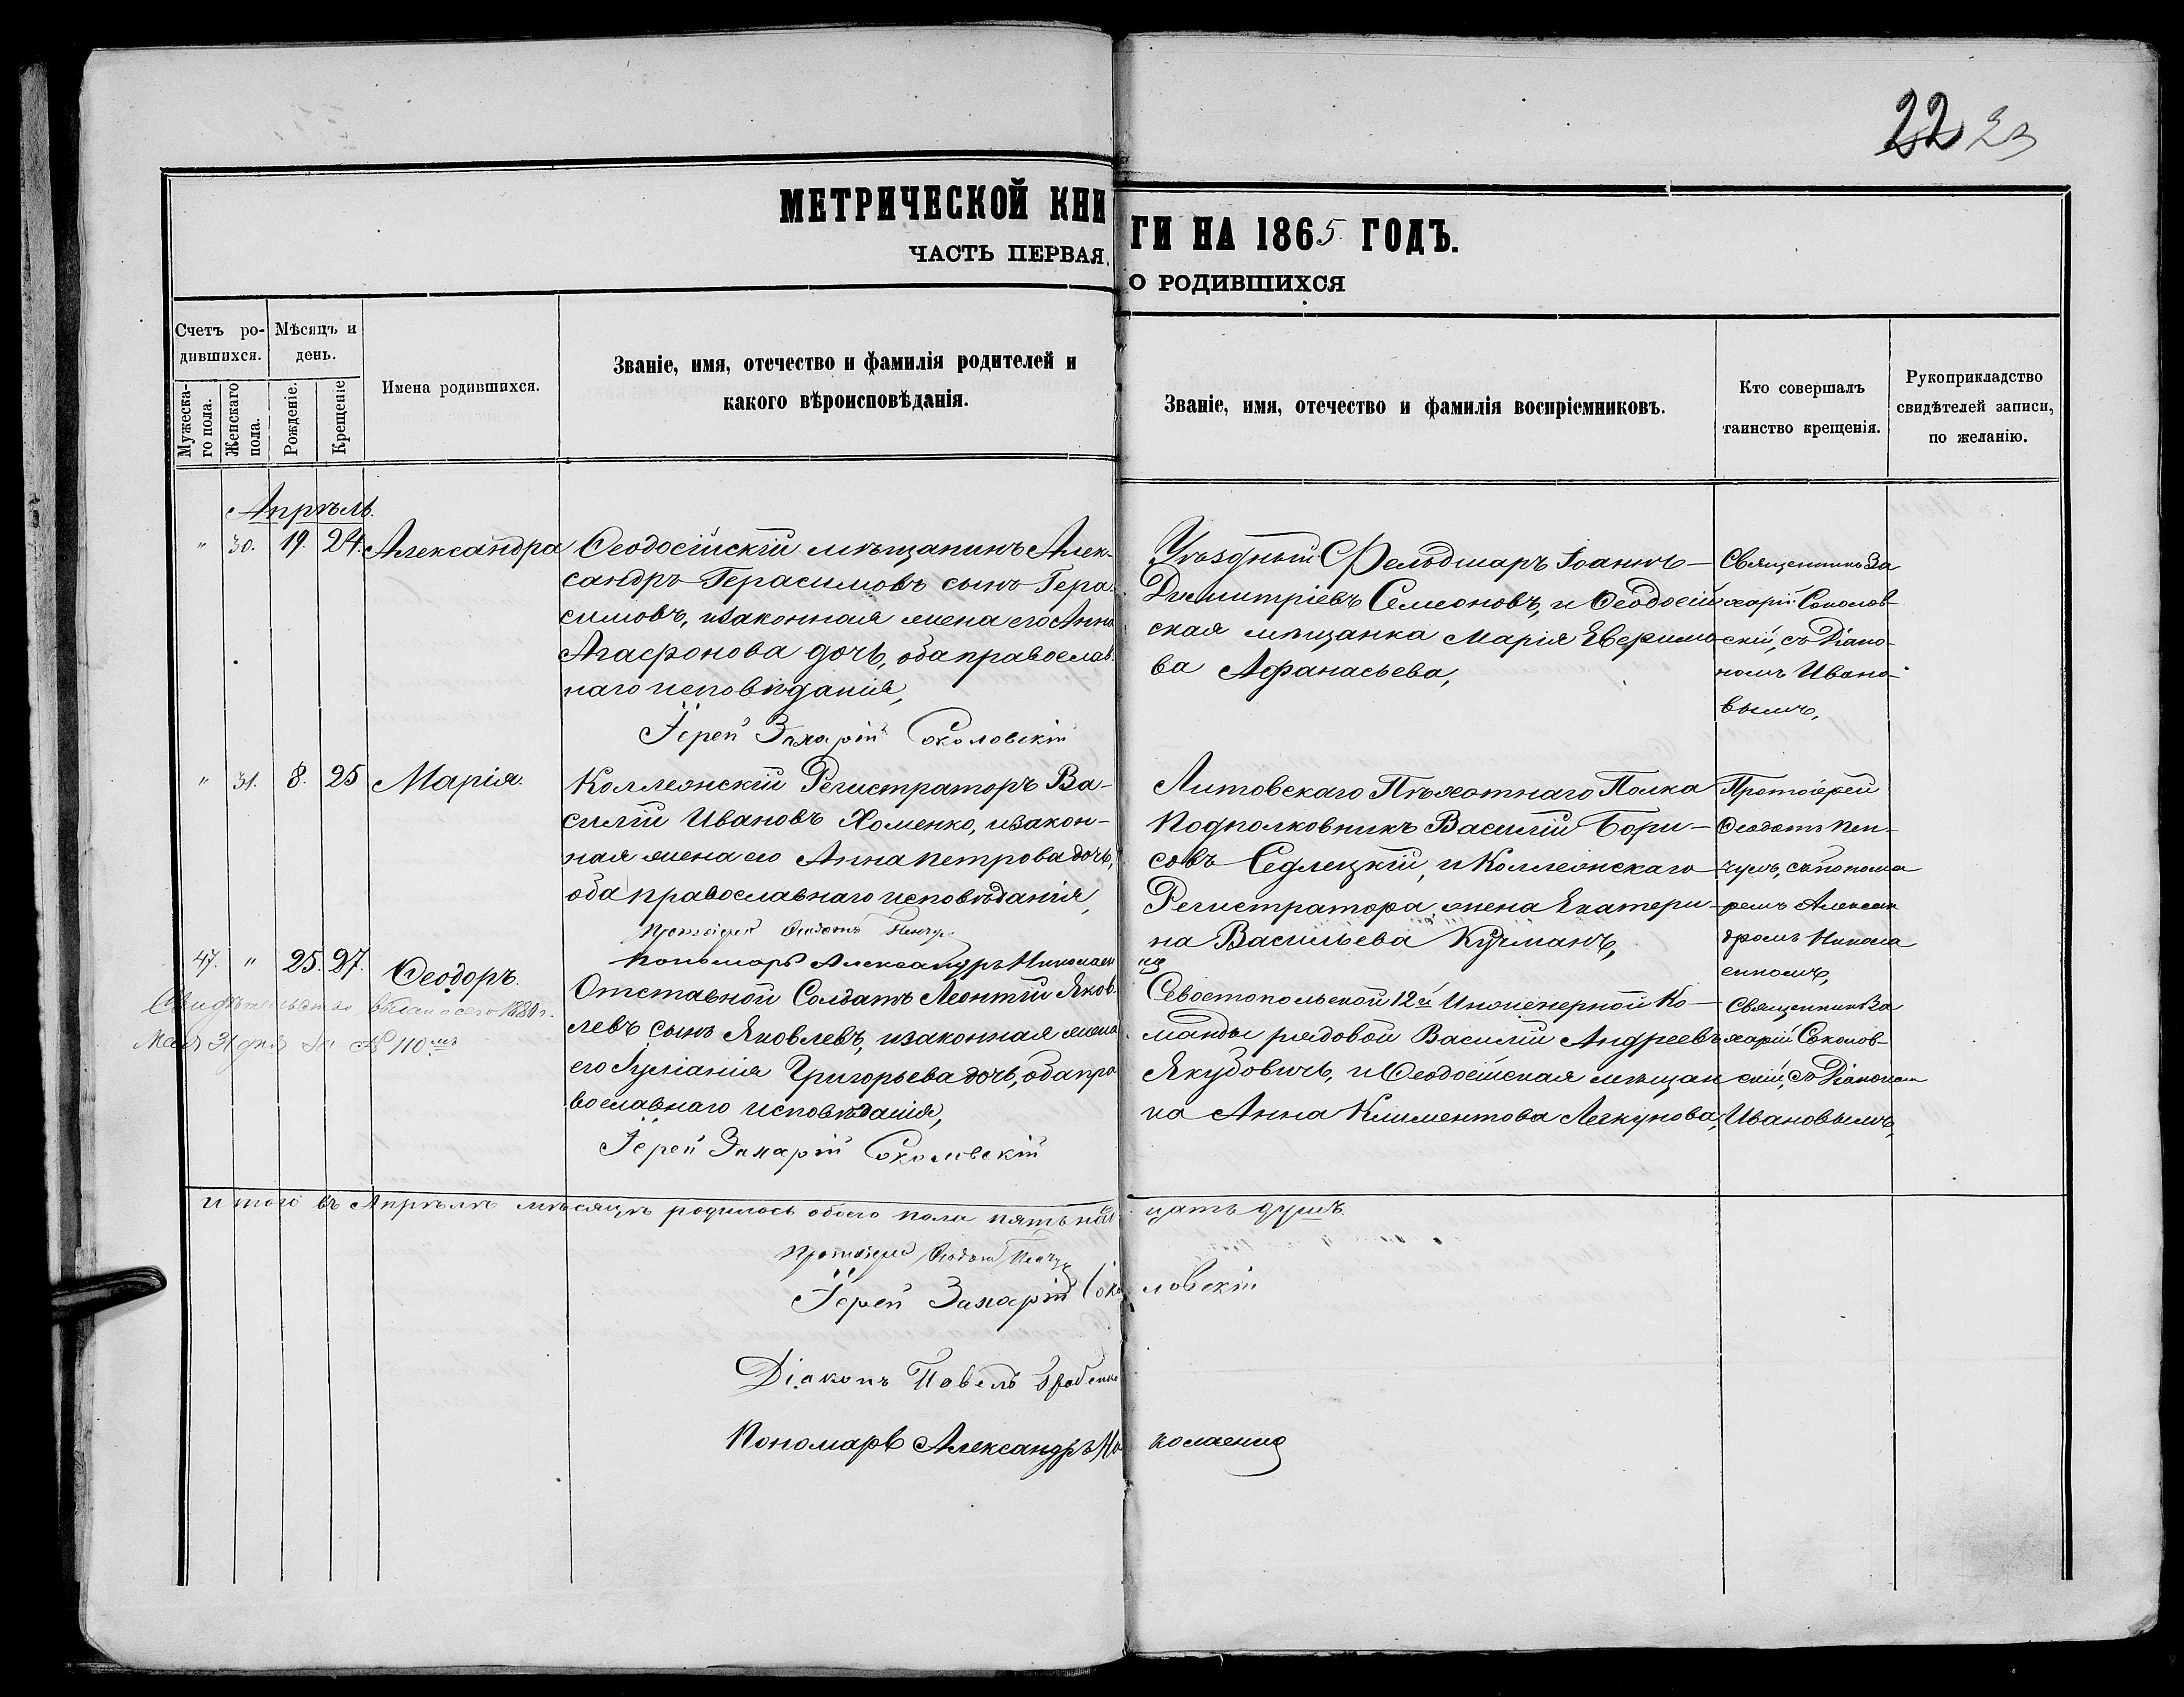 22 23
МЕТРИЧЕСКОЙ КНИГИ НА 1865 ГОДЪ.
ЧАСТЬ ПЕРВАЯ, О РОДИВШИХСЯ
Счетъ ро-
дившихся.
Мѣсяцъ и
день.
Мужеска-
го пола.
Женскаго
пола.
Рожденіе.
Крещеніе
Имена родившихся.
Званіе, имя, отечество и фамилія родителей и
какого вѣроисповѣданія.
Званіе, имя, отечество и фамилія воспріемниковъ.
Кто совершалъ
таинство крещенія.
Рукоприкладство
свидѣтелей записи,
по желанію.
Апрѣль.
" 30. 19. 24. Александра
Ѳеодосійскій мѣщанинъ Алек-
сандръ Герасимовъ сынъ Гера-
симовъ, изаконная жена его Анна
Агафонова дочь, оба православ-
наго исповѣданія,
Іерей Захарій Соколовскій
Уѣздный Фельдшаръ Іоаннъ
Димитріевъ Семеоновъ, и Ѳеодосій
ская мѣщанка Марія Еверимо
ва Афанасьева,
Священникъ За
харій Соколов-
скій, съ Діако-
номъ Ивано-
вымъ,
" 31. 8. 25 Марія.
Коллежскій Регистраторъ Ва-
силій Ивановъ Хоменко, изакон-
ная жена его Анна Петрова дочь,
оба православнаго исповѣданія,
Протоіерей Ѳеодотъ Пенчул
Пономарь Александръ Николаен
ко
Литовскаго Пѣхотнаго Полка
Подполковникъ Василій Бори-
совъ Седлецкій, и Коллежскаго
Регистратора жена Екатери-
на Васильева Кучманъ,
Протоіерей
Ѳеодотъ Пен-
чулъ, съ понома
ремъ Алексан
дромъ Никола
енкомъ,
47. " 25. 27. Ѳеодоръ.
Свидѣтельство выдано сего 1880 г.
Мая 31 дня за № 110мъ
Отставной Солдатъ Леонтій Яков-
левъ сынъ Яковлевъ, изаконная жена
его Іуліанія Григорьева дочь, оба пра
вославнаго исповѣданія,
Іерей Захарій Соколовскій
Севостопольской 12й Инженерной Ко-
манды рядовой Василій Андреевъ
Якубовичъ, и Ѳеодосійская мѣщан
ка Анна Климентова Легкунова,
Священникъ За
харій Соколов-
скій, съ Діаконом
Ивановымъ,
Итого въ Апрѣлѣ мѣсяцѣ родилось обоего пола пятьнадцать душъ.
Протоіерей Ѳеодотъ Пенчул
Іерей Захарій Соколовскій
Діаконъ Павелъ
Пономарь Александръ Николаенко